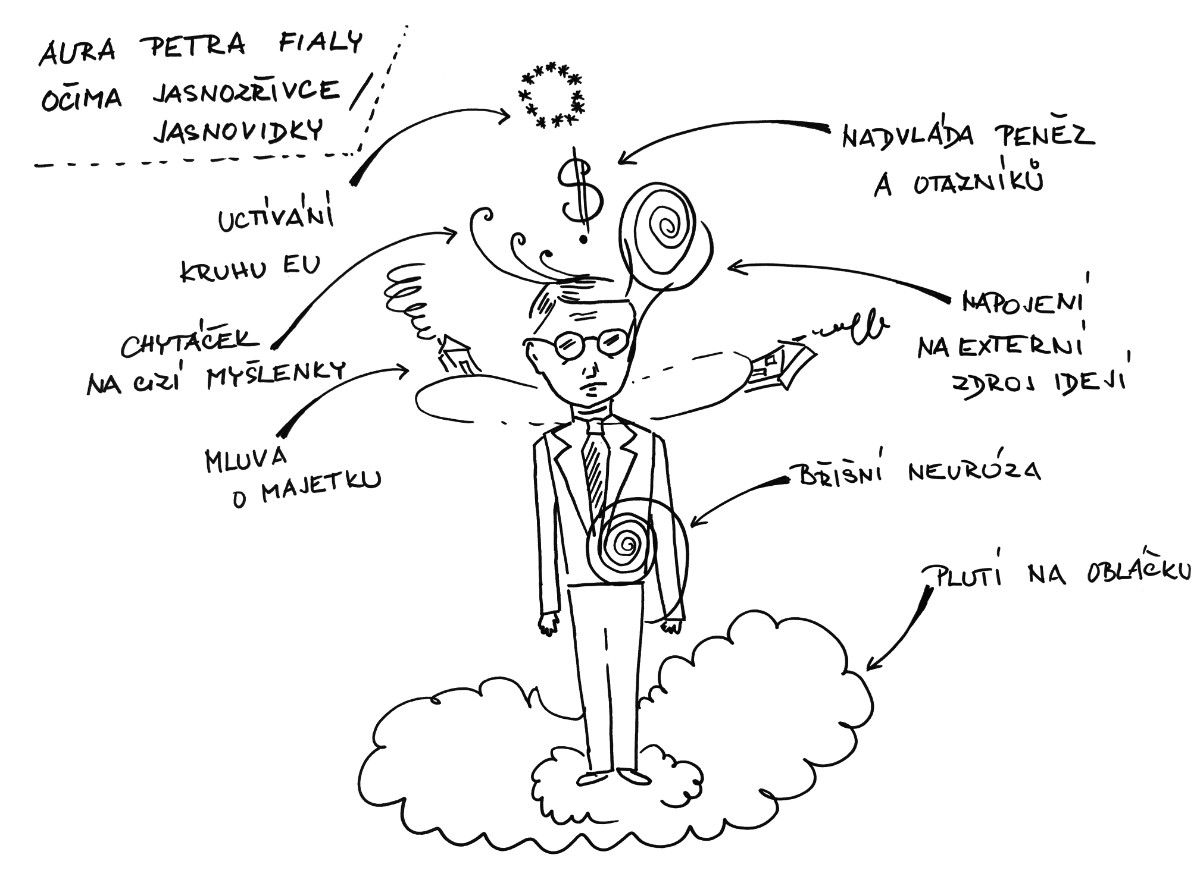 AURA PETRA FIALY
OČIMA JASNOZŘIVCE /
JASNOVIDKY
UCTÍVÁNÍ
KRUHU EU
CHYTÁČEK
NA CIZÍ MYŠLENKY
MLUVA
O MAJETKU
$
NADVLÁDA PENĚZ
A OTAZNÍKŮ
NAPOJENÍ
NA EXTERNÍ
ZDROJ IDEJÍ
BŘIŠNÍ NEURÓZA
PLUTÍ NA OBLÁČKU